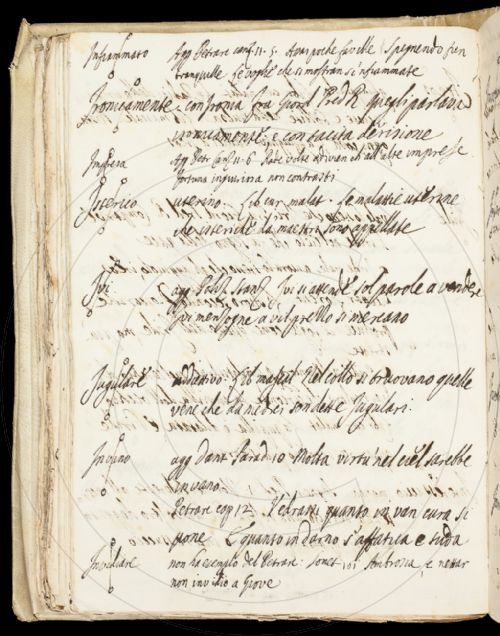 Infiammato Agg Petrarc canz. 11. 5. Avea poche faville spegnendo fien
tranquille le voglie che si mostran sì infiammate
Ironicamente. con Ironia fra Giord Pred R. quegli parlava
ironicamente, e con tacita derisione
Impresa Ag Petr Canz 11. 6 Rade volte adivien ch all'alte imprese
fortuna ingiuriosa non contrasti
Isterico uterino. Lib cur malat. le malattie uterine
che isteriche da maestri sono appellate
Ivi agg Poliz Stanz Ivi si attende sol parole a vendere
Ivi menzogne a vil prezzo si mercano
Jugulare addiettivo Lib mascal Nel collo si truovano quelle
vene che da medici son dette Jugulari.
Invano agg Dant Parad 10 Molta virtù nel ciel sarebbe
in vano.
Petrarc cap 12. Vedrassi quanto in van cura si
pone E quanto indarno s'affatica e suda
Invidiare non ha esempio del Petrarc: sonet 161 Ambrosia, e nettar
non invidio a Giove